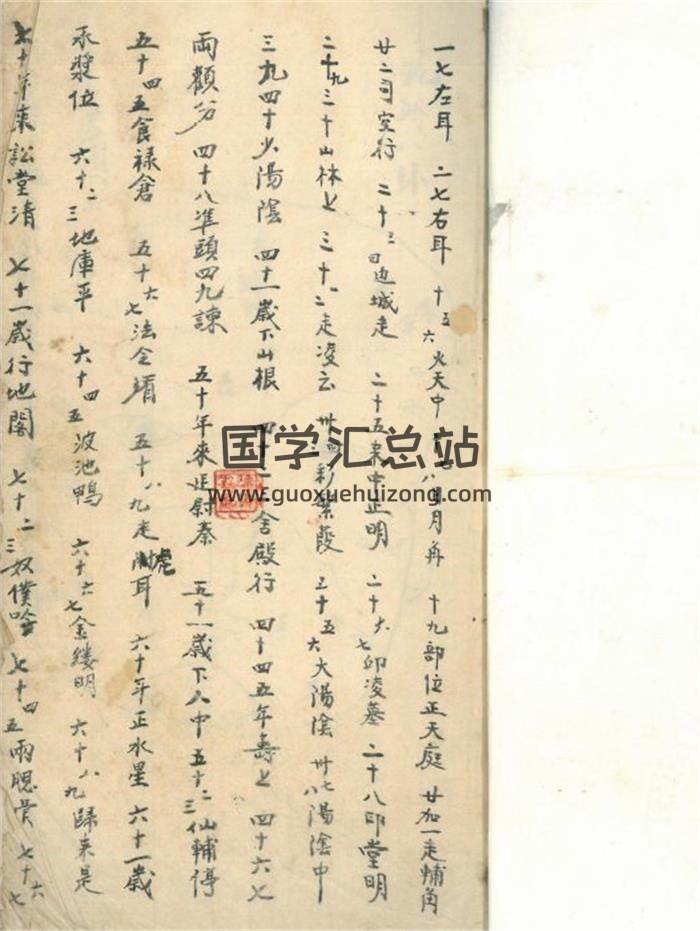 一七左耳 二七右耳 十五六火天中 八日月角 十九部位正天庭 廿加一走輔角
廿二司空行 二十三 边城走 二十五 中正明 二十六七印凌墓 二十八印堂明
二十九三十山林上 三十一二走凌云 彩紫霞 三十五六太陽陰 卅七八陽陰中
三九四十少陽陰 四十一歲下山根 四十 舍殿行 四十四五年壽上 四十六七
兩顴分 四十八準頭四九諫 五十年來廷尉秦 五十一歲下人中 五十二三仙輔停
五十四五食禄倉 五十六七法令 五十八九走虎耳 六十年正水星 六十一歲
承漿位 六十二三地庫平 六十四五波池鴨 六十六七金縷明 六十八九歸來是
七十年來訟堂清 七十一歲行地閣 七十二三奴僕 七十四五兩腮骨 七十六七
国学汇总站
www.guoxuehuizong.com